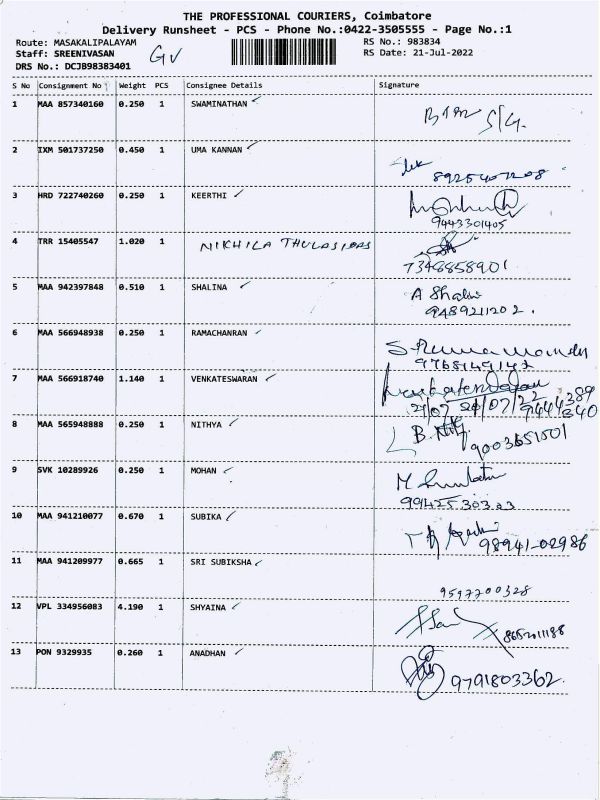 THE PROFESSIONAL COURIERS, Coimbatore
Delivery Runsheet - PCS - Phone No.:0422-3505555 - Page No.:1
Route: MASAKALIPALAYAM RS No.: 983834
Staff: SREENIVASAN GV RS Date: 21-Jul-2022
DRS No.: DCJB98383401
S No Consignment No Weight PCS Consignee Details Signature
1 MAA 857340160 0.250 1 SWAMINATHAN
2 IXM 501737250 0.450 1 UMA KANNAN
3 HRD 722740260 0.250 1 KEERTHI
9443301405
4 TRR 15405547 1.020 1 NIKHILA THULASIDAS
7348858901
5 MAA 942397848 0.510 1 SHALINA A Shalini
9489211202.
6 MAA 566948938 0.250 1 RAMACHANRAN
7 MAA 566918740 1.140 1 VENKATESWARAN
8 MAA 565948888 0.250 1 NITHYA
9003651501
9 SVK 10289926 0.250 1 MOHAN
99425 303 23
10 MAA 941210077 0.670 1 SUBIKA
98941-02986
11 MAA 941209977 0.665 1 SRI SUBIKSHA
9597700328
12 VPL 334956083 4.190 1 SHYAINA
13 PON 9329935 0.260 1 ANADHAN
9791803362.